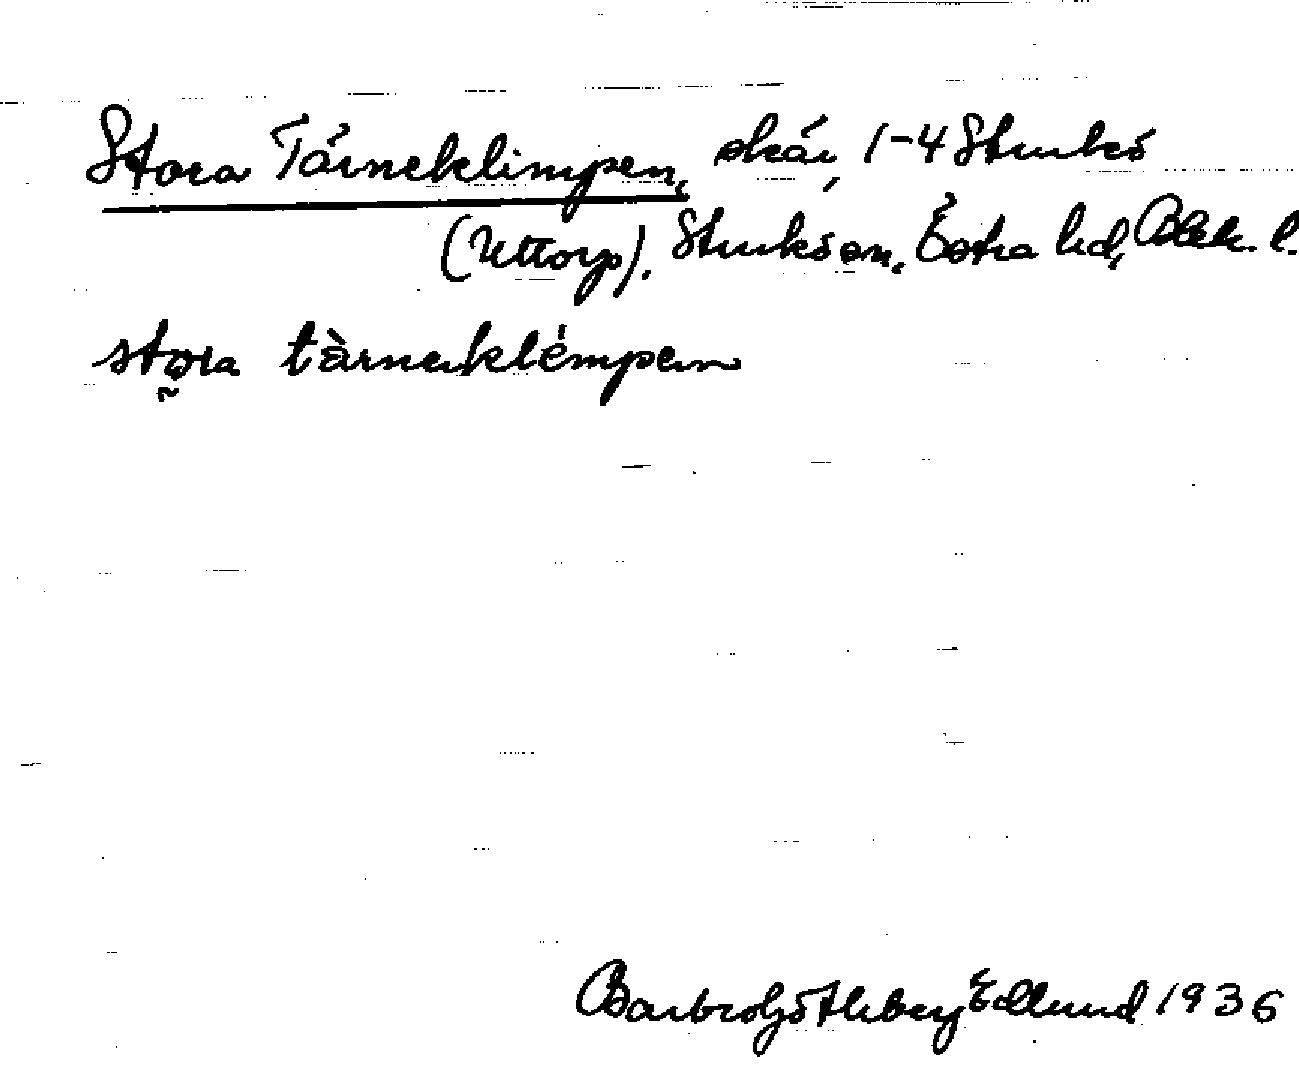 Stora Tärneklimpen, skär, 1-4 Sturkö
(Uttorp). Sturkö sn, Östra hd, Blek. l.
stora tàrnaklémpen
Barbro Söthberg Edlund 1936